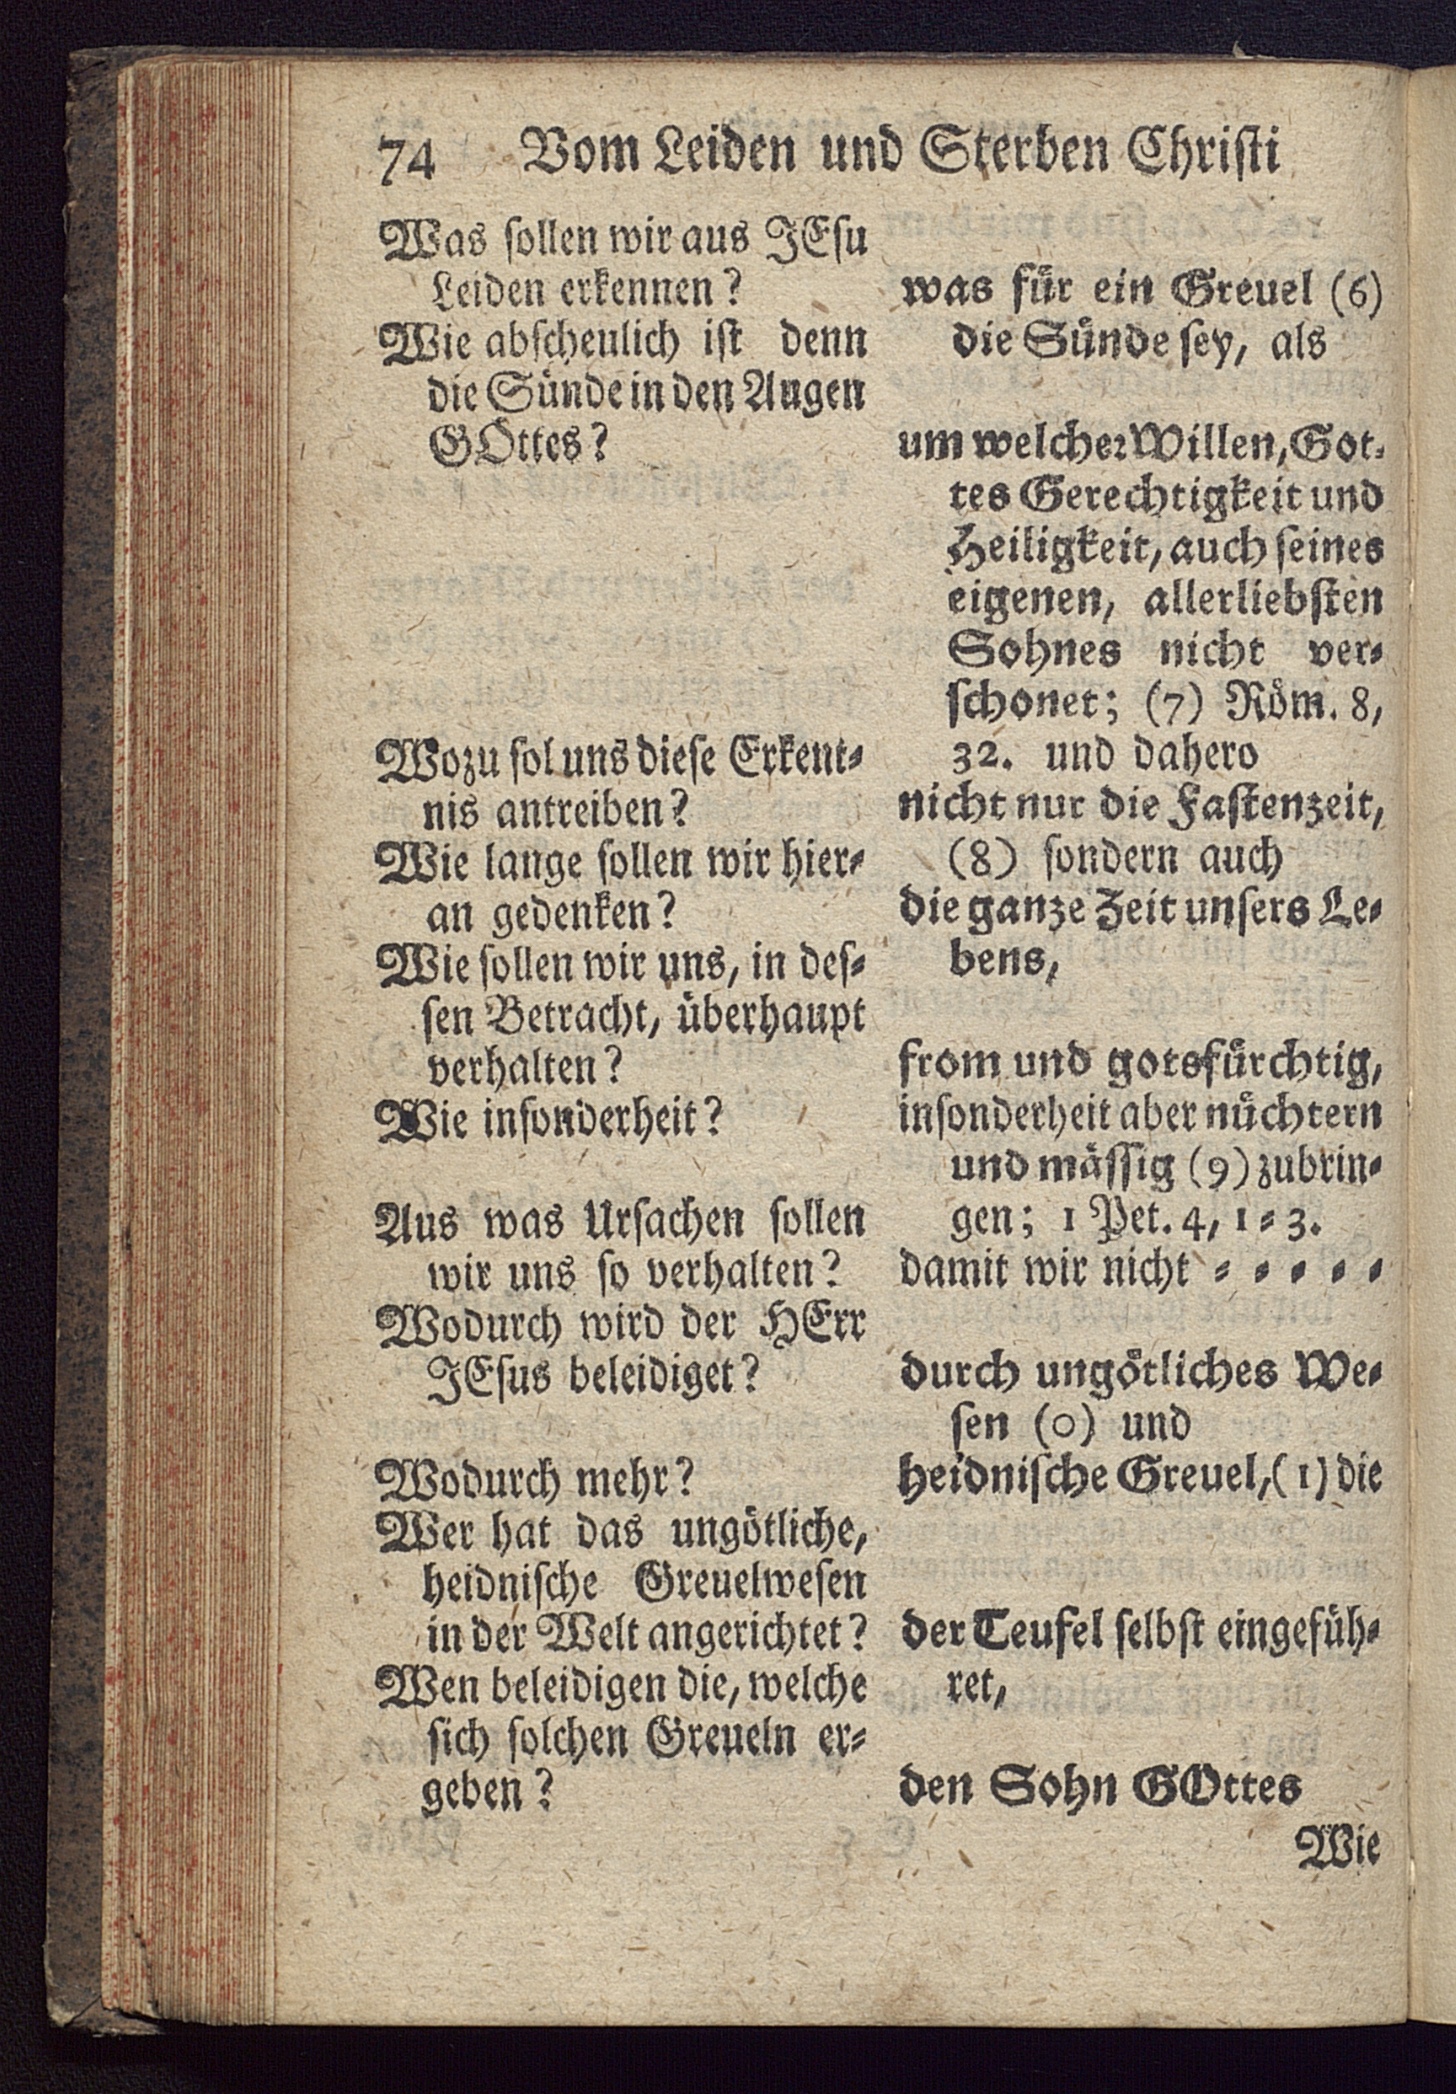 74 Vom Leiden und Sterben Christi
Was sollen wir aus JEsu
Leiden erkennen?
Wie abscheulich ist denn
die Sünde in den Augen
GOttes?
Wozu sol uns diese Erkent-
nis antreiben?
Wie lange sollen wir hier-
an gedenken?
Wie sollen wir uns, in des-
sen Betracht, überhaupt
verhalten?
Wie insonderheit?
Aus was Ursachen sollen
wir uns so verhalten?
Wodurch wird der HErr
JEsus beleidiget?
Wodurch mehr?
Wer hat das ungötliche,
heidnische Greuelwesen
in der Welt angerichtet?
Wen beleidigen die, welche
sich solchen Greueln er-
geben?
was für ein Greuel (6)
die Sünde sey, als
um welcher Willen, Got-
tes Gerechtigkeit und
Heiligkeit, auch seines
eigenen, allerliebsten
Sohnes nicht ver-
schonet; (7) Röm. 8,
32. und dahero
nicht nur die Fastenzeit,
(8) sondern auch
die ganze Zeit unsers Le-
bens,
from und gotsfürchtig,
insonderheit aber nüchtern
und mässig (9) zubrin-
gen; 1 Pet. 4, 1-3.
damit wir nicht - - - - -
durch ungötliches We-
sen (0) und
heidnische Greuel, (1) die
der Teufel selbst eingefüh-
ret,
den Sohn GOttes
Wie